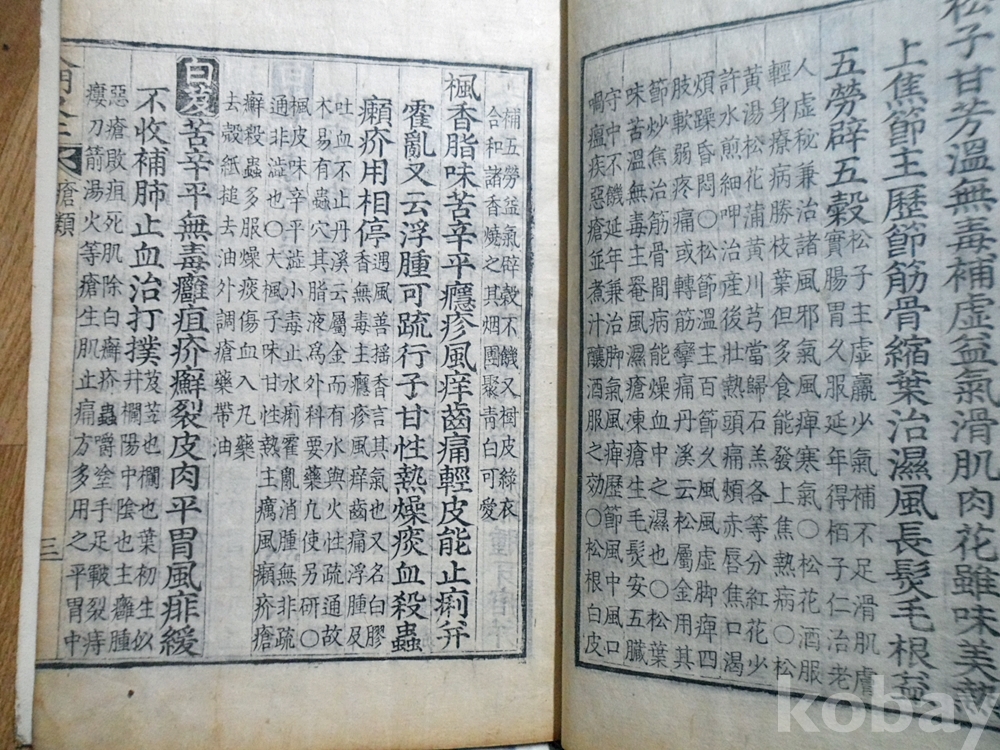 松子甘芳溫無毒補虛益氣滑肌肉花雖味美熱
上焦節主歷節筋骨縮葉治濕風長髮毛根益
五勞辟五穀
松子主虛羸少氣補不足滑肌膚
實腸胃久服延年得栢子仁治老
人虛秘兼治諸風邪氣風痺寒氣○松花酒服
輕身療病勝枝葉但多食能發上焦熱病○松
黃湯松花蒲黃川芎當歸石羔各等分紅花少
許水煎細呷治産後壯熱頭痛頰赤唇焦口渴
煩躁昏悶○松節溫主百節久風風虛脚痺四
肢軟弱疼痛或轉筋攣痛丹溪云松屬金用其
節炒焦治筋骨間病能燥血中之濕也○松葉
味苦溫無毒主菴風濕瘡凍瘡生毛髮安五臟
守中不饑延年兼治脚氣風痺歷節風中風口
喎瘟疾惡瘡並煮汁釀酒服之効○松根白皮
補五勞益氣辟穀不饑又樹皮綠衣
合和諸香燒之其烟團聚靑白可愛
楓香脂味苦辛平癮疹風痒齒痛輕皮能止痢幷
霍亂又云浮腫可疏行子甘性熱燥痰血殺蟲
癩疥用相停
遇風善搖香言其氣也又名白膠
香無毒主癮疹風痒齒痛浮腫及
吐血不止丹溪云屬金而有水與火性疏通故
木易有蟲穴其脂液爲外科要藥凡使另研○
楓皮味辛平澁小毒止水痢霍亂消腫無非疏
通非澁也○大楓子味甘性熱主癘風癩疥瘡
癬殺蟲多服燥痰傷血入丸藥
去殼紙搥去油外調瘡藥帶油
白芨苦辛平無毒癰疽疥癬裂皮肉平胃風痱緩
不收補肺止血治打撲
芨芨也欄也葉初生似
井欄陽中陰也主癰腫
惡瘡敗疽死肌除白癬疥蟲嚼塗手足皸裂痔
瘻刀箭湯火等瘡生肌止痛方多用之平胃中
瘡類
三
kobay